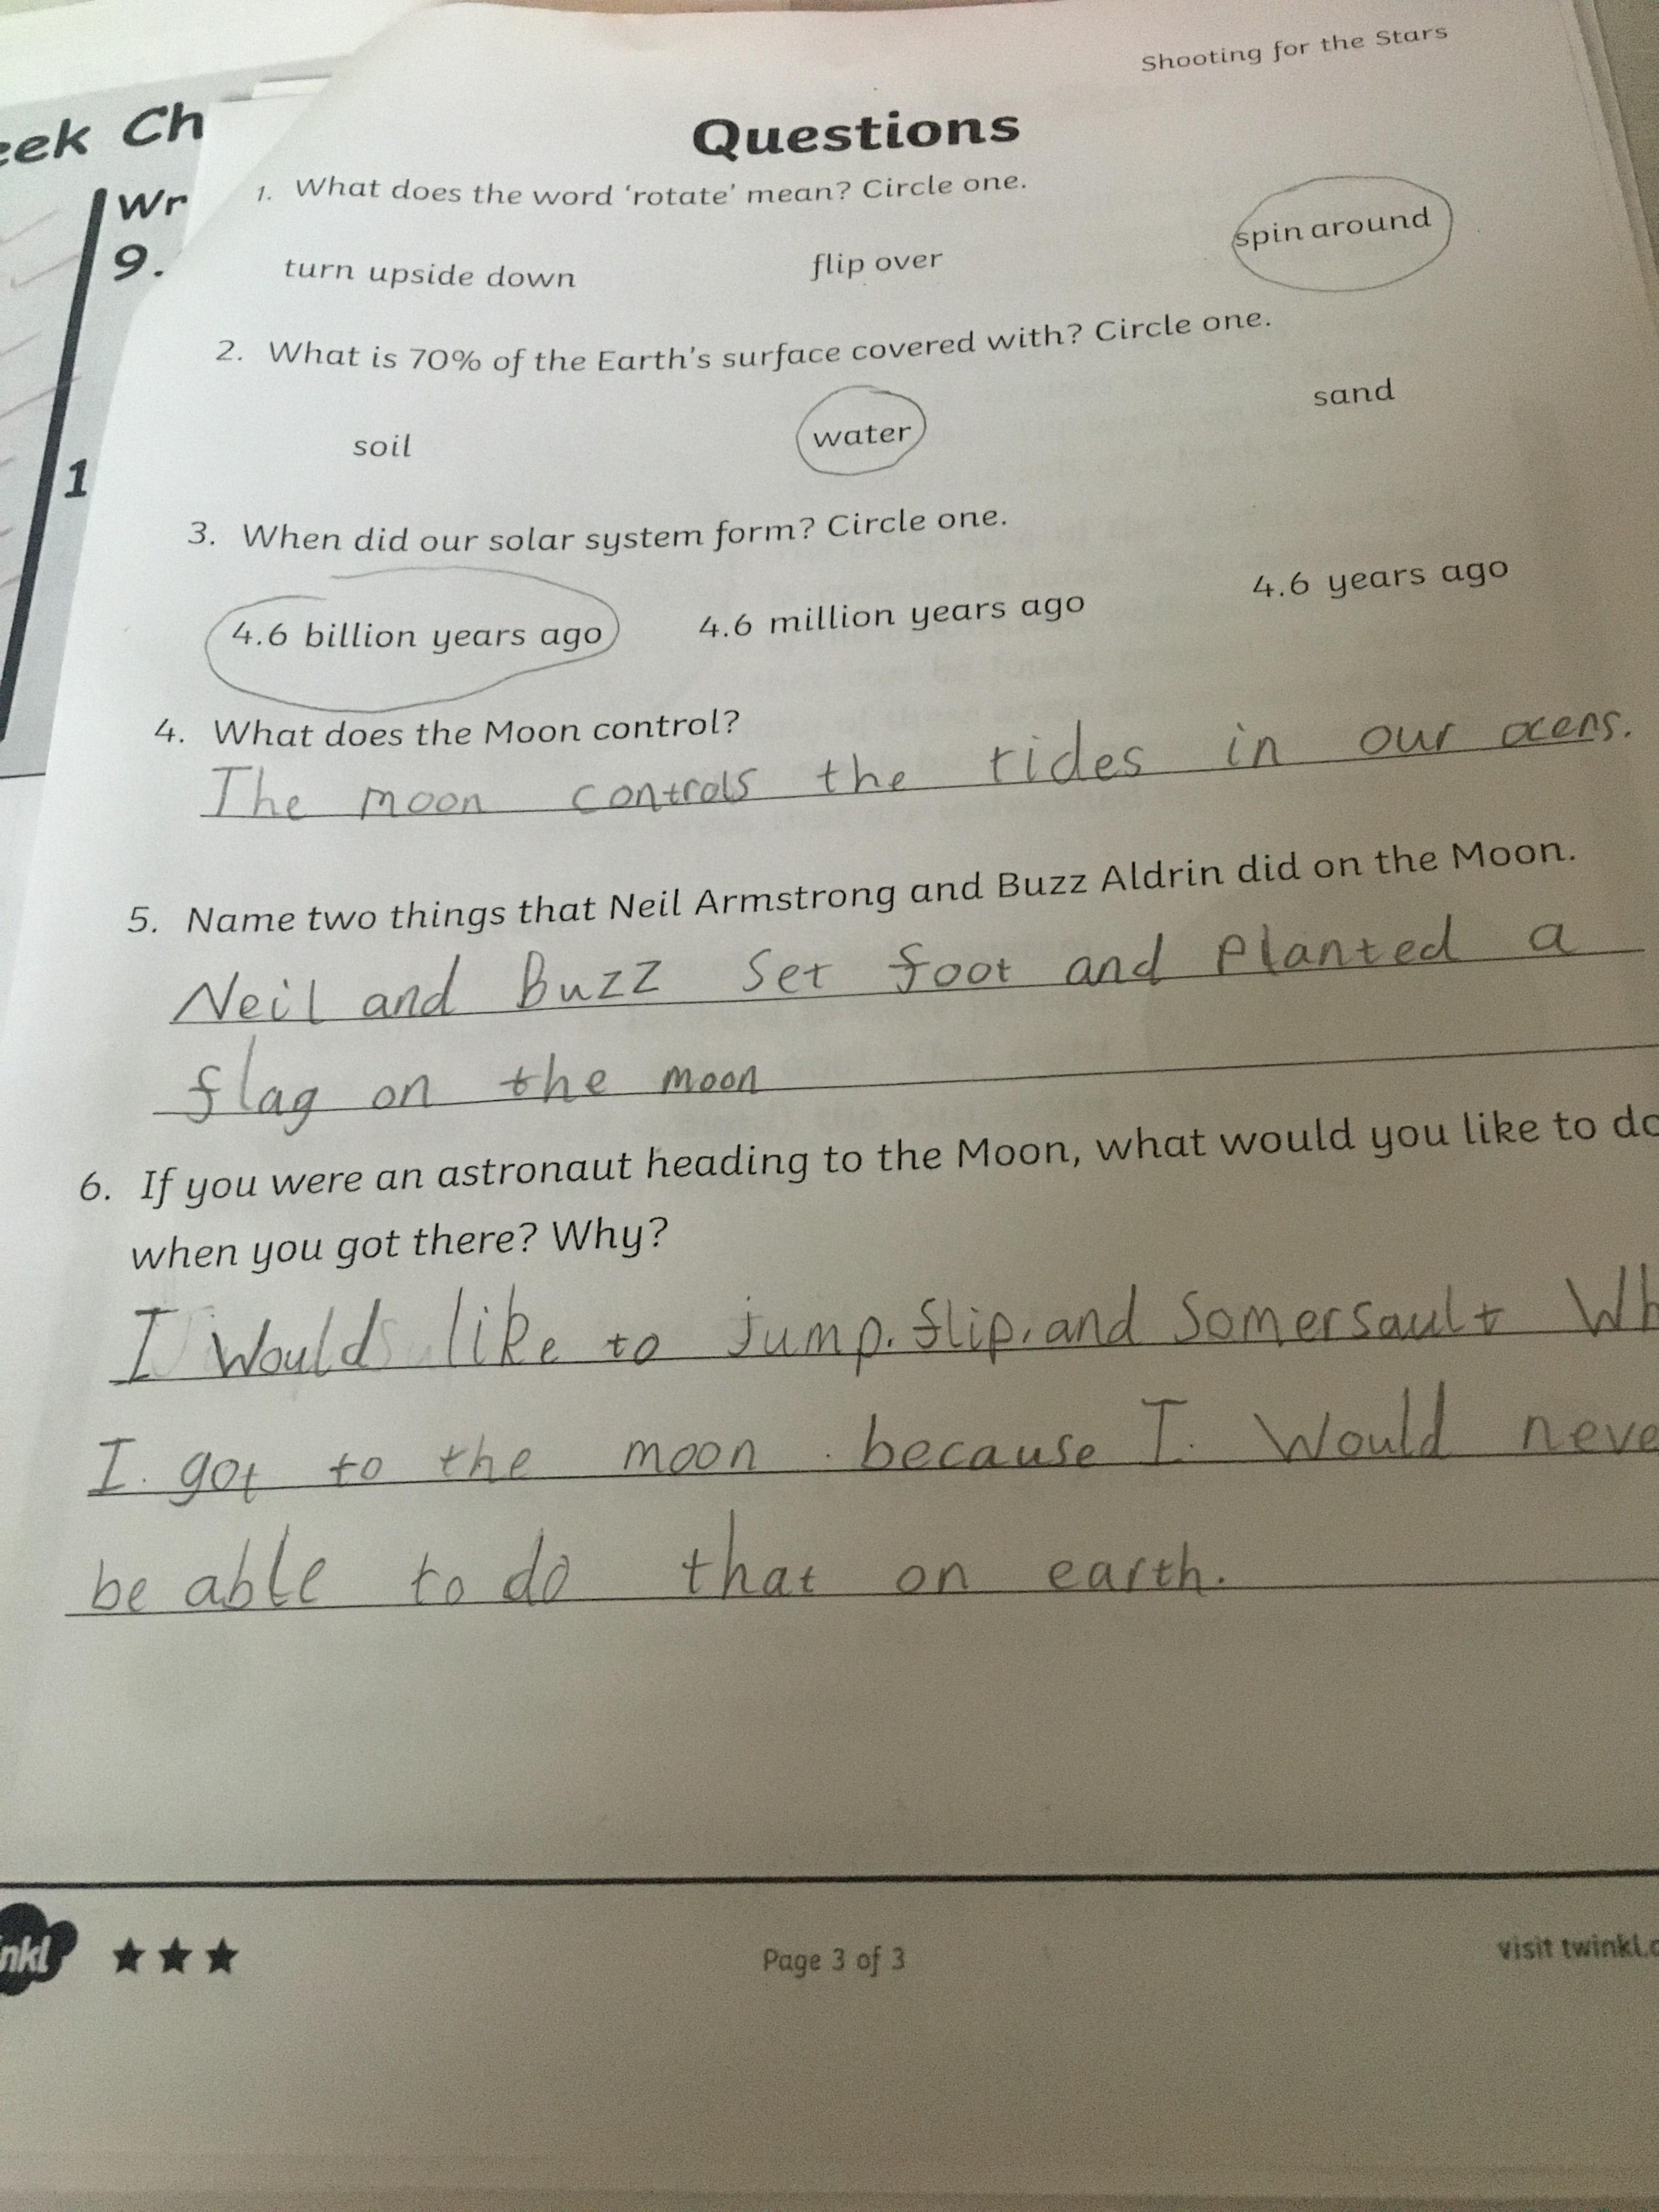 Shooting for the Stars
eek Ch
Wr
9.
1
Questions
1. What does the word ‘rotate’ mean? Circle one.
turn upside down flip over spin around
2. What is 70% of the Earth's surface covered with? Circle one.
soil water sand
3. When did our solar system form? Circle one.
4.6 billion years ago 4.6 million years ago 4.6 years ago
4. What does the Moon control?
The moon controls the tides in our ocens.
5. Name two things that Neil Armstrong and Buzz Aldrin did on the Moon.
Neil and Buzz Set foot and Planted a
flag on the moon
6. If you were an astronaut heading to the Moon, what would you like to do
when you got there? Why?
I Would like to jump, flip, and Somersault Wh
I. got to the moon. because I. Would neve
be able to do that on earth.
nkl
Page 3 of 3
visit twinkl.c